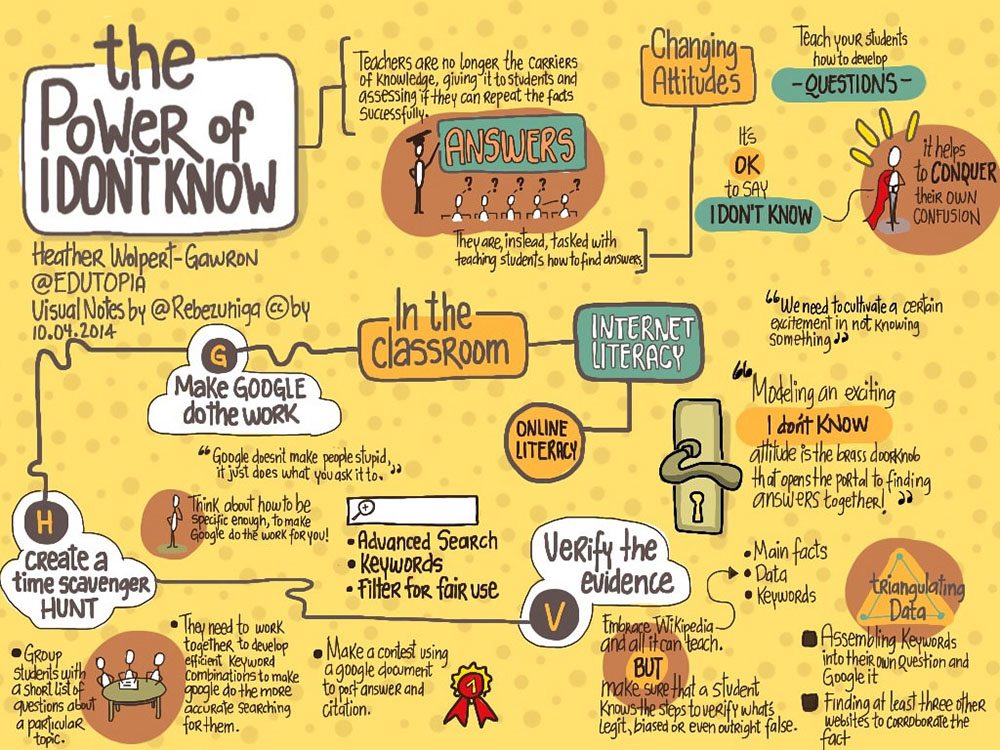 the
Power of
I DON'T KNOW
Heather Wolpert-Gawron
@EDUTOPIA
Visual Notes by @Rebezuniga cc by
10.04.2014
Teachers are no longer the carriers
of knowledge, giving it to students and
assessing if they can repeat the facts
successfully.
ANSWERS
? ? ? ? ?
They are, instead, tasked with
teaching students how to find answers.
Changing
Attitudes
Teach your students
how to develop
- QUESTIONS -
It's
OK
to SAY
I DON'T KNOW
it helps
to CONQUER
their own
CONFUSION
In the
classroom
INTERNET
LITERACY
ONLINE
LITERACY
"We need to cultivate a certain
excitement in not knowing
something"
"Modeling an exciting
I don't KNOW
attitude is the brass doorknob
that opens the portal to finding
answers together!"
G
Make GOOGLE
do the work
"Google doesn't make people stupid,
it just does what you ask it to."
Think about how to be
specific enough, to make
Google do the work for you!
• Advanced Search
• Keywords
• Filter for fair use
H
Create a
time scavenger
HUNT
• Group
students with
a short list of
questions about
a particular
topic.
• They need to work
together to develop
efficient keyword
combinations to make
google do the more
accurate searching
for them.
• Make a contest using
a google document
to post answer and
citation.
1
Verify the
evidence
V
Embrace Wikipedia
and all it can teach.
BUT
make sure that a student
knows the steps to verify what's
legit, biased or even outright false.
• Main facts
• Data
• Keywords
triangulating
Data
Assembling Keywords
into their own Question and
Google it
Finding at least three other
websites to corroborate the
fact